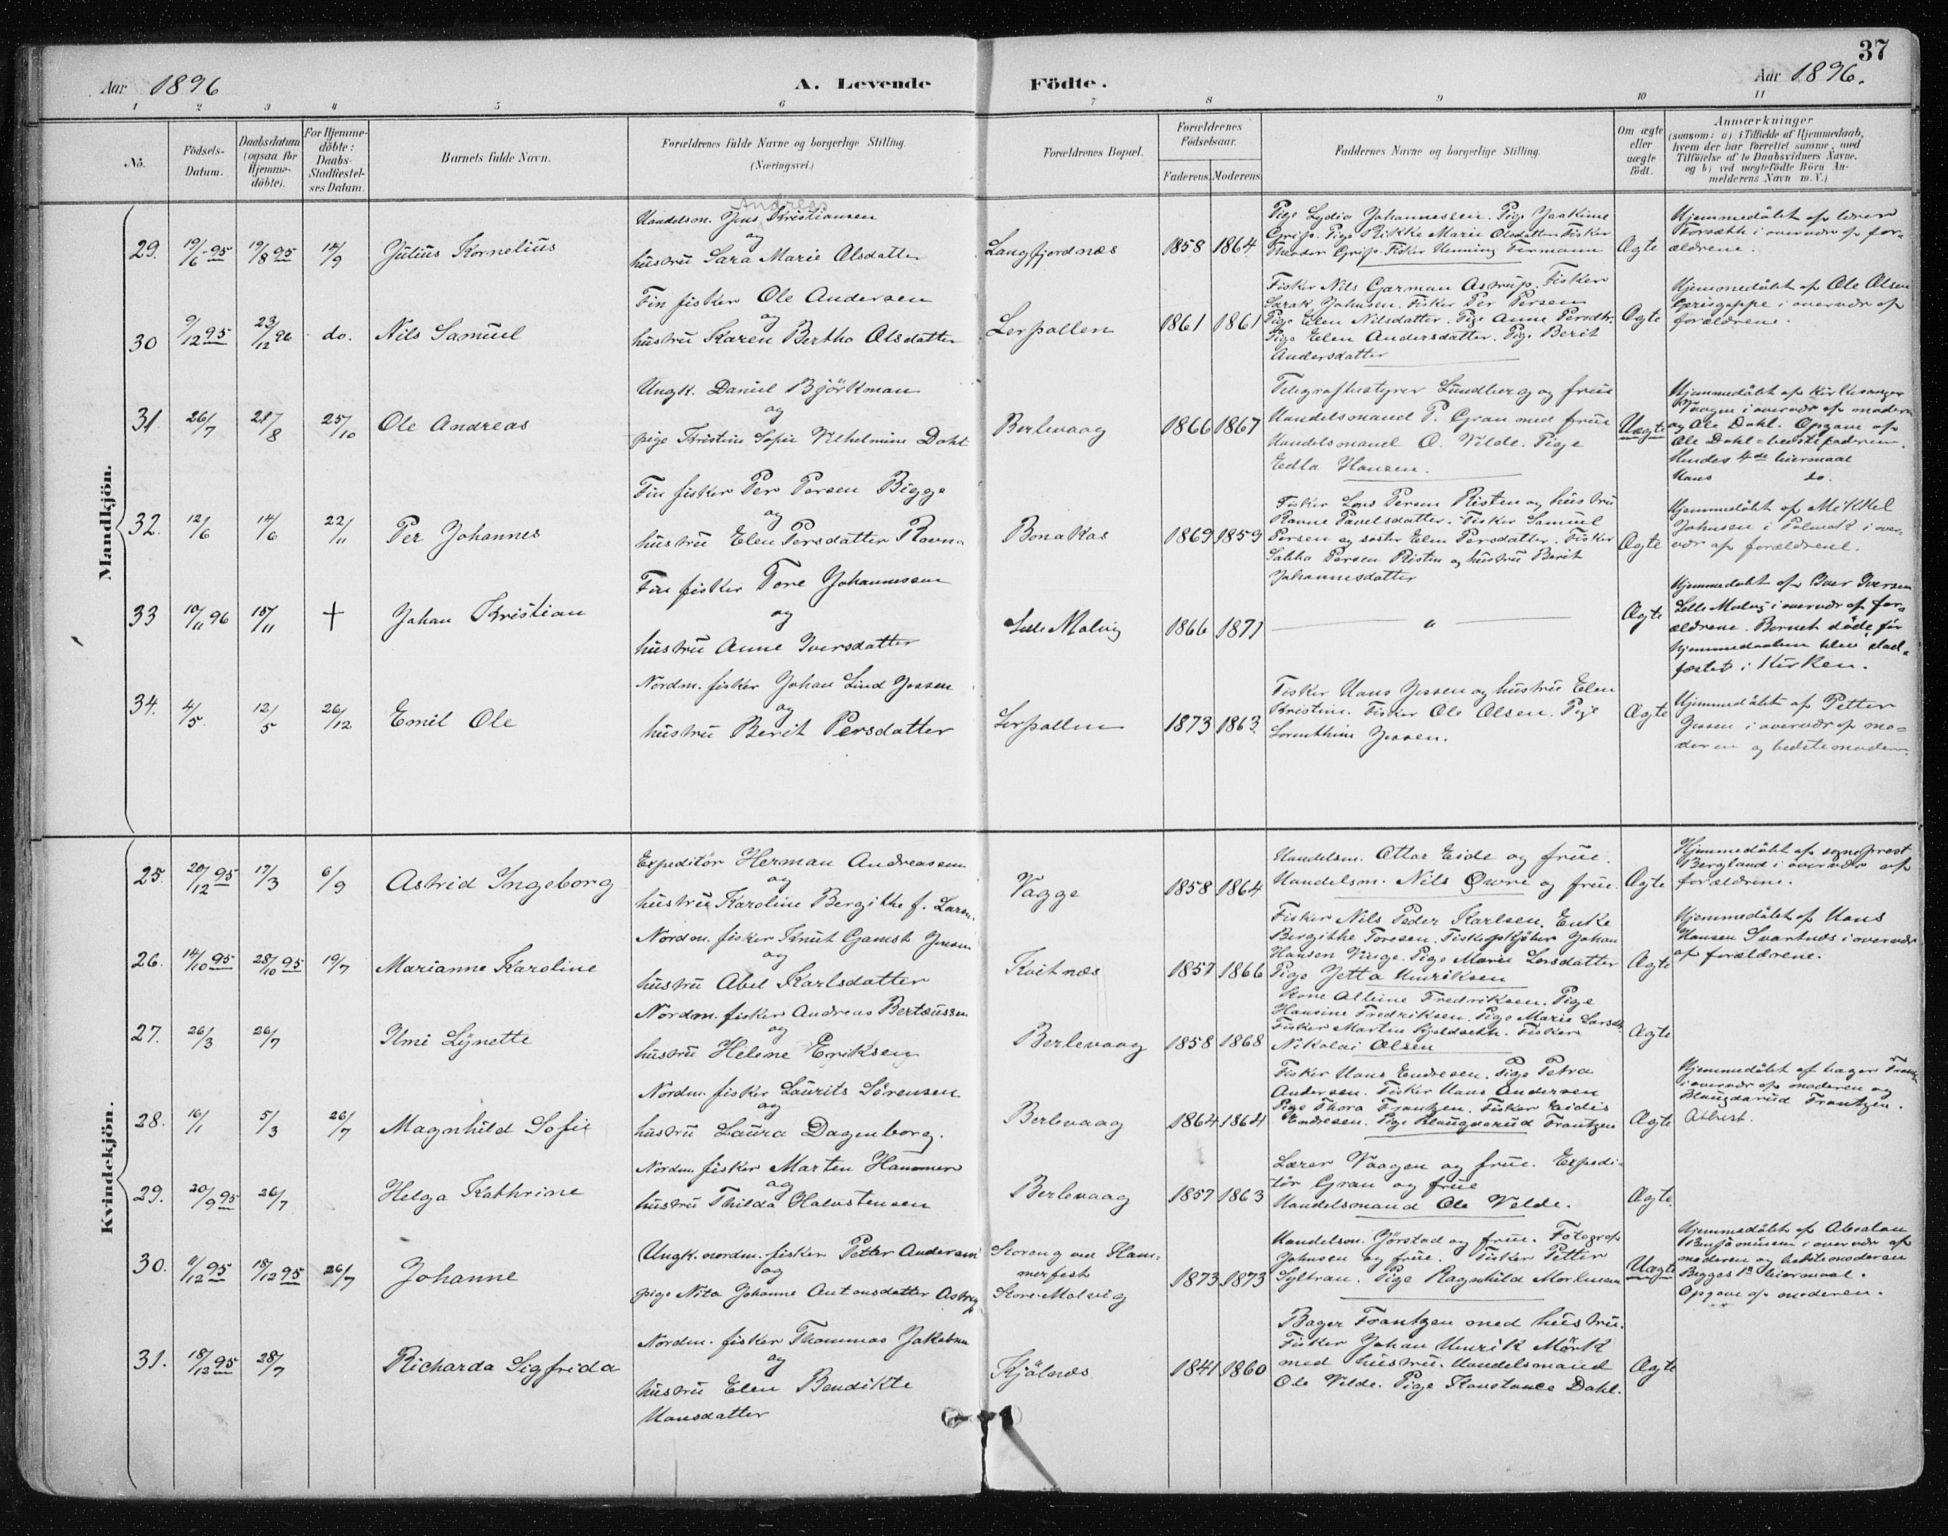 37
Aar 1896
A. Levende Födte.
Aar 1896.
1 2 3 4 5 6 7 8 9 10 11
No.
Födsels-Datum.
Daabsdatum (ogsaa for Hjemme-döbte).
For Hjemme-döbte: Daabs-Stadfæstel-ses Datum.
Barnets fulde Navn.
Forældrenes fulde Navne og borgerlige Stilling.
(Næringsvei.)
Forældrenes Bopæl.
Forældrenes Födselsaar.
Faderens. Moderens.
Faddernes Navne og borgerlige Stilling.
Om ægte eller uægte födt.
Anmærkninger
(saasom: a) i Tilfælde af Hjemmedaab,
hvem der har forrettet samme, med
Tilföielse af to Daabsvidners Navne.
og b) ved uægtefödte Börn An-
melderens Navn m. V.)
Mandkjön.
Andreas
29. 19/6 95 19/8 95 14/9 Julius Kornelius
Handelsm. Jens Kristiansen
og
hustru Sara Marie Olsdatter
Langfjordnæs 1858 1864
Pige Lydia Johannessen. Pige Joakime
Grip. Pige Rikke Marie Olsdatter. Fisker
Theodor Grip. Fisker Henning Fermann
Ægte
Hjemmedöbt af lærer
i overvær af for-
ældrene.
30 9/12 95 23/12 96 do. Nils Samuel
Fin fisker Ole Andersen
og
hustru Karen Bertha Olsdatter
Lerpollen 1861 1861
Fisker Nils Garman Astrup. Fisker
Sarak Johnsen. Fisker Per Persen
Pige Elen Nilsdatter. Pige Anne Persdtr.
Pige Elen Andersdatter. Pige Berit
Andersdatter
Ægte
Hjemmedöbt af Ole Olsen
i overvær af
forældrene.
31 26/7 21/8 25/10 Ole Andreas
Ungk. Daniel Björkman
og
pige Kristine Sofie Vilhelmine Dahl
Berlevaag 1866 1867
Telegrafbestyrer Lundberg og frue
Handelsmand P. Gran med frue
Handelsmand O. Velde. Pige
Edla Hansen.
Uægte
Hjemmedöbt af kirkesanger
Vaagen i overvær af moderen
og Ole Dahl. Opgave af
Ole Dahl = bedstefaderen.
Hendes 4de leiermaal
Hans do.
32. 12/6 14/6 22/11 Per Johannes
Fin fisker Per Persen Bigge
og
hustru Elen Persdatter Ravna
Bonakas 1869 1859
Fisker Lars Persen Risten og hustru
Ravne Pavelsdatter. Fisker Samuel
Persen og söster Elen Persdatter. Fisker
Sabba Persen Risten og hustru Berit
Johannesdatter
Ægte
Hjemmedöbt af Mikkel
Johnsen i Polmak i over-
vær af forældrene.
33 10/11 96 15/11 + Johan Kristian
Fin fisker Tore Johannessen
og
hustru Anne Iversdatter
Lille Molvig 1866 1871
"
Ægte
Hjemmedöbt af Iver Iversen
Lille Molvig i overvær af for-
ældrene. Barnet döde før
hjemmedaaben blev stad-
fæstet i Kirken.
34. 4/5 12/5 26/12 Emil Ole
Nordm. fisker Johan Lind Jessen
og
hustru Berit Persdatter
Lerpollen 1873 1863.
Fisker Hans Jessen og hustru Elen
Kristine. Fisker Ole Olsen. Pige
Lorenthine Jessen.
Ægte
Hjemmedöbt af Petter
Jessen i overvær af mo-
deren og bedstemoderen.
Kvindekjön.
25. 20/12 95 17/3 6/9 Astrid Ingeborg
Expeditör Herman Andreassen
og
hustru Karoline Bergithe f. Larsen
Vagge 1858 1864
Handelsm. Ottar Eide og frue.
Handelsm. Nils Øwre og frue.
Ægte
Hjemmedöbt af sogneprest
Bergland i overvær af
forældrene.
26. 14/10 95 28/10 95 19/7 Marianne Karoline
Nordm. fisker Knut Gamst Jensen
og
hustru Abel Karlsdatter
Kvitnæs 1857 1866
Fisker Nils Peder Karlsen. Enke
Bergithe Toresen. Fiskeopkjöber Johan
Hansen Vinge. Pige Marie Larsdatter
Pige Jetta Henriksen
Ægte
Hjemmedöbt af Hans
Hansen Svartnæs i overvær
af forældrene.
27. 26/3 26/7 Ilmi Lynette
Nordm. fisker Andreas Berteussen
og
hustru Heline Eriksen
Berlevaag 1858 1868
Kone Alteine Fredriksen. Pige
Hansine Fredriksen. Pige Marie Larsdtr.
Fisker Martin Kjeldseth. Fisker
Nikolai Olsen
Ægte
28. 16/1 5/3 26/7 Magnhild Sofie
Nordm. fisker Laurits Sörensen
og
hustru Laura Dagenborg.
Berlevaag 1864 1864
Fisker Hans Endresen. Pige Petra
Andersen. Fisker Hans Andersen
Pige Thora Frantzen. Fisker Eidis
Endresen. Pige Haugdarud Frantzen
Ægte
Hjemmedöbt af bager Frantz.
i overvær af moderen og
Haugdarud Frantzen.
Attest.
29. 20/9 95 26/7 Helga Kathrine
Nordm. fisker Marten Hammer
og
hustru Thilda Halvstensen
Berlevaag 1857 1863
Lærer Vaagen og frue. Expedi-
tör Gran og frue
Handelsmand Ole Velde.
Ægte.
30. 9/12 95 18/12 95 26/7 Johanne
Ungk. nordm. fisker Petter Andersen
og
pige Nita Johanne Antonsdatter Astrup
Korang ved Ham-
merfest
Store-Molvig
1873 1873
Handelsm. Jörstad og frue. Fotograf
Johnsen og frue. Fisker Petter
Syltran. Pige Ragnhild Mortensen
Uægte
Hjemmedöbt af Absalon
Benjaminsen i overvær af
moderen og bedstemoderen
Begges 1ste leiermaal.
Opgave af moderen.
31. 18/12 95 28/7 Richarda Sigfrida
Nordm. fisker Thommas Jakobsen
og
hustru Elen Bendikte
Hansdatter
Kjölnes 1841 1860
Bager Frantzen med hustru.
Fisker Johan Henrik Mörk
med hustru. Handelsmand
Ole Velde. Pige Konstance Dahl.
Ægte